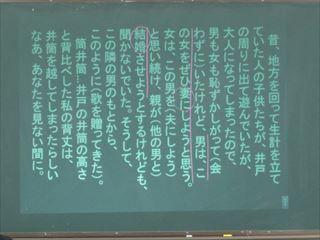 昔、地方を回って生計を立て
ていた人の子供たちが、井戸
の周りに出て遊んでいたが、
大人になってしまったので、
男も女も恥ずかしがって(会
わずに)いたけれど、男は、こ
の女をぜひ妻にしようと思う。
女は、この男を(夫にしよう)
と思い続け、親が(他の男と)
結婚させようとするけれども、
聞かないでいた。そうして、
この隣の男のもとから、
このように(歌を贈ってきた)。
筒井筒…井戸の井筒の高さ
と背比べした私の背丈は、
井筒を越してしまったらしい
なあ、あなたを見ない間に。